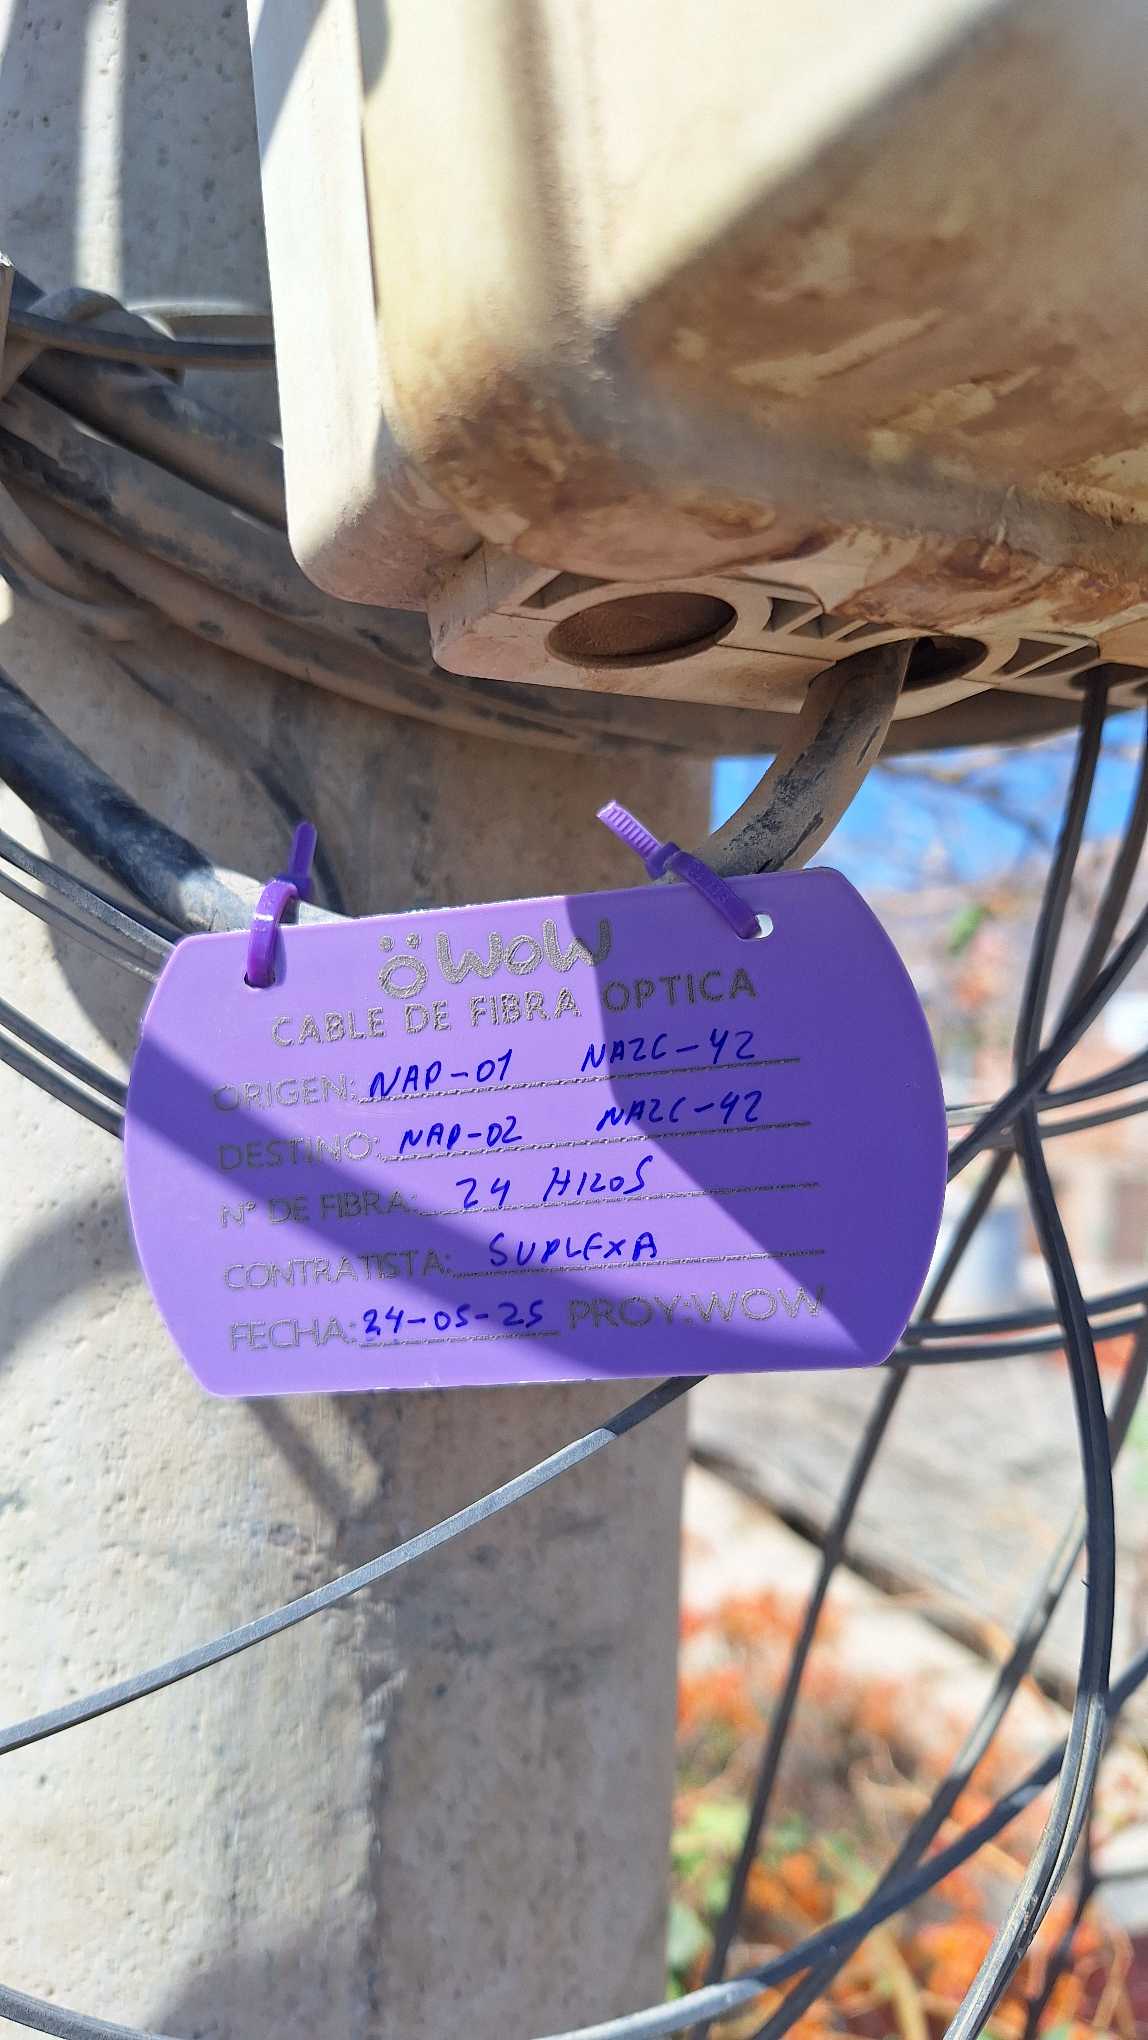 WOW
CABLE DE FIBRA OPTICA
ORIGEN: NAP-01 NAZC-42
DESTINO: NAP-02 NAZC-42
N° DE FIBRA: 24 HILOS
CONTRATISTA: SUPLEXA
FECHA: 24-05-25 PROY:WOW